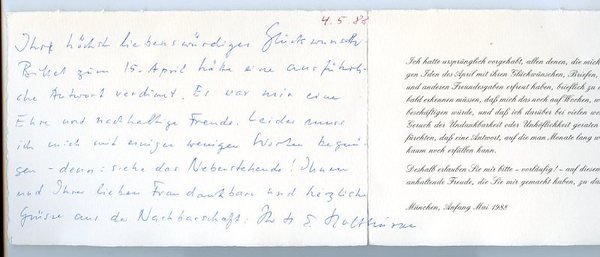 4.5.88
Ihr höchst liebenswürdiges Glückwunsch-
Billet zum 15. April hätte eine ausführli-
che Antwort verdient. Es war mir eine
Ehre und nachhaltige Freude. Leider muss
ich mich mit einigen wenigen Worten begnü-
gen - denn: siehe das Nebenstehende! Ihnen
und Ihrer lieben Frau dankbare und herzliche
Grüsse aus der Nachbarschaft: Ihr H E Holthusen
Ich hatte ursprünglich vorgehabt, allen denen, die mich
gen Iden des April mit ihren Glückwünschen, Briefen,
und anderen Freundesgaben erfreut haben, brieflich zu
bald erkennen müssen, daß mich das noch auf Wochen, w
beschäftigen würde, und daß ich darüber bei vielen wo
Geruch der Undankbarkeit oder Unhöflichkeit geraten
fürchten, daß eine Antwort, auf die man Monate lang w
kaum noch erfüllen kann.
Deshalb erlauben Sie mir bitte – vorläufig! – auf diesem
anhaltende Freude, die Sie mir gemacht haben, zu da
München, Anfang Mai 1988